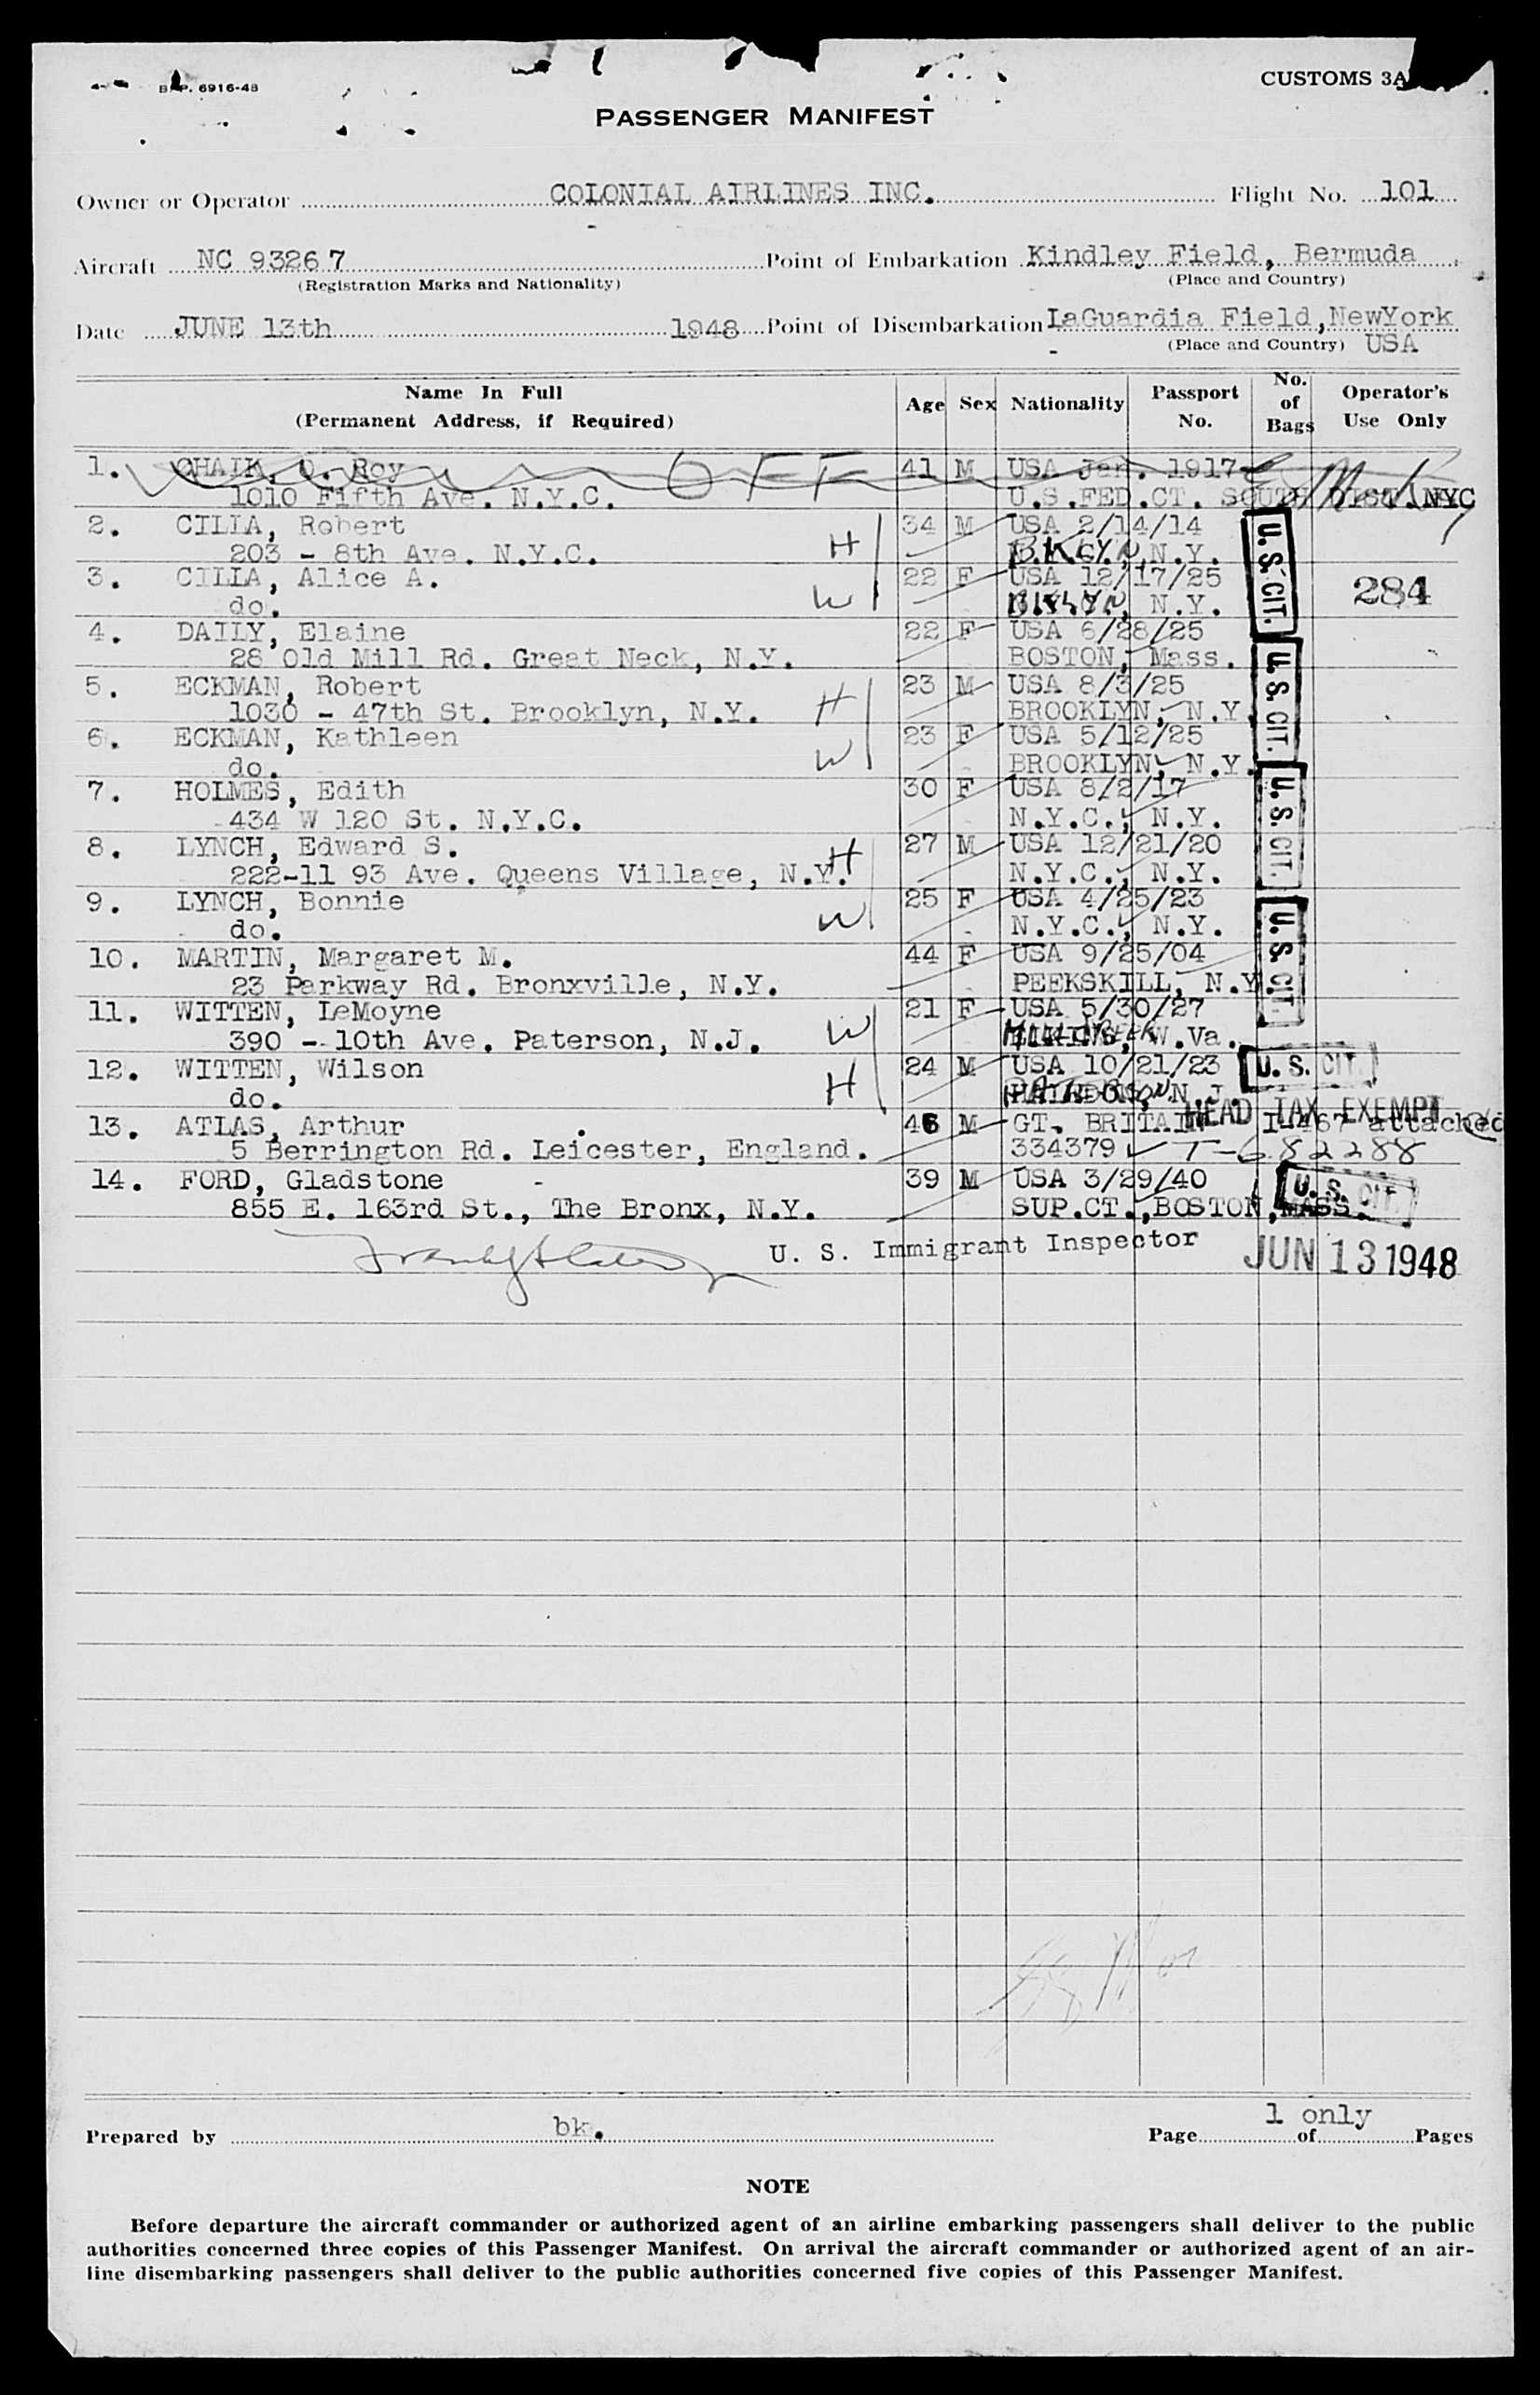 6916-48
CUSTOMS 3A
PASSENGER MANIFEST
Owner or Operator COLONIAL AIRLINES INC. Flight No. 101
Aircraft NC 93267 Point of Embarkation Kindley Field, Bermuda
(Registration Marks and Nationality) (Place and Country)
Date JUNE 13th 1948 Point of Disembarkation LaGuardia Field, NewYork
(Place and Country) USA
Name In Full (Permanent Address, if Required) Age Sex Nationality Passport No. No. of Bags Operator's Use Only
1. CHAIK, O. Roy OFF 41 M USA Jan. 1917
1010 Fifth Ave. N.Y.C. U.S.FED.CT. SOUTH DIST.NYC
2. CILIA, Robert 34 M USA 2/14/14
203 - 8th Ave. N.Y.C. H BKLYN, N.Y. U.S. CIT.
3. CILIA, Alice A. 22 F USA 12/17/25
do. W BKLYN, N.Y. 284
4. DAILY, Elaine 22 F USA 6/28/25
28 Old Mill Rd. Great Neck, N.Y. BOSTON, Mass. U.S. CIT.
5. ECKMAN, Robert 23 M USA 8/3/25
1030 - 47th St. Brooklyn, N.Y. H BROOKLYN, N.Y.
6. ECKMAN, Kathleen 23 F USA 5/12/25
do. W BROOKLYN, N.Y.
7. HOLMES, Edith 30 F USA 8/2/17 U.S. CIT.
434 W 120 St. N.Y.C. N.Y.C., N.Y.
8. LYNCH, Edward S. 27 M USA 12/21/20
222-11 93 Ave. Queens Village, N.Y. H N.Y.C., N.Y.
9. LYNCH, Bonnie 25 F USA 4/25/23 U.S. CIT.
do. W N.Y.C., N.Y.
10. MARTIN, Margaret M. 44 F USA 9/25/04
23 Parkway Rd. Bronxville, N.Y. PEEKSKILL, N.Y.
11. WITTEN, LeMoyne 21 F USA 5/30/27
390 - 10th Ave. Paterson, N.J. W W.Va.
12. WITTEN, Wilson 24 M USA 10/21/23 U. S. CIT.
do. H PATERSON, N.J.
13. ATLAS, Arthur 46 M GT. BRITAIN HEAD TAX EXEMPT I-467 attached
5 Berrington Rd. Leicester, England. 334379 T-682288
14. FORD, Gladstone 39 M USA 3/29/40 U. S. CIT.
855 E. 163rd St., The Bronx, N.Y. SUP.CT.,BOSTON,MASS.
U. S. Immigrant Inspector JUN 13 1948
1 only
Prepared by bk. Page of Pages
NOTE
Before departure the aircraft commander or authorized agent of an airline embarking passengers shall deliver to the public
authorities concerned three copies of this Passenger Manifest. On arrival the aircraft commander or authorized agent of an air-
line disembarking passengers shall deliver to the public authorities concerned five copies of this Passenger Manifest.